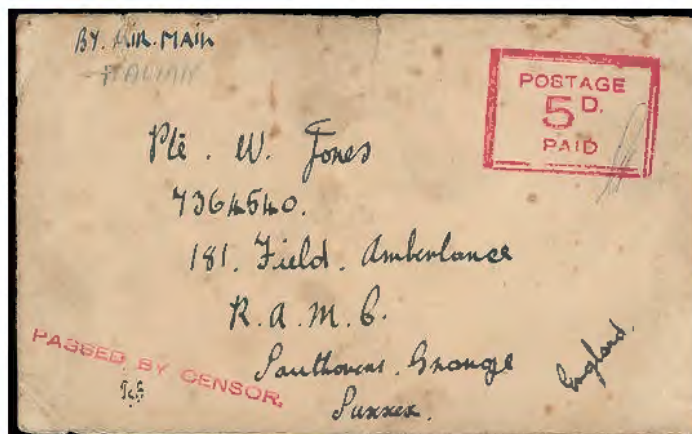 BY. AIR. MAIL
ITALIAN
POSTAGE
5D.
PAID
Pte. W. Jones
7364540.
181. Field. Amberlance
R.A.M.C.
Grange
Sussex.
England.
PASSED BY CENSOR.